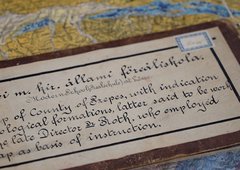 i m. kir. állami főreáliskola.
(Modern School (Realschule) at Lőcse)
p of County of Szepes, with indication
ological formations, latter said to be work
he late Director S. Roth, who employed
ap as basis of instruction.